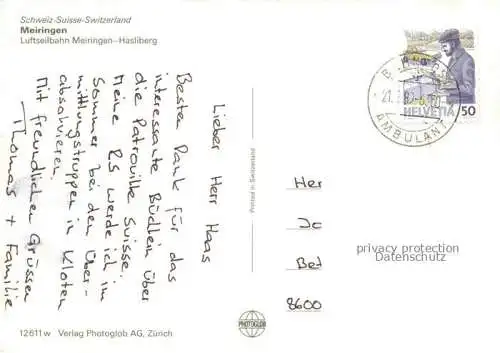 Schweiz-Suisse-Switzerland
Meiringen
Luftseilbahn Meiringen–Hasliberg
Lieber Herr Haas
Besten Dank für das
interessante Büchlein über
die Patrouille Suisse.
Meine RS werde ich im
Sommer bei den Über-
mittlungstruppen in Kloten
absolvieren.
Mit freundlichen Grüssen
Thomas + Familie
Printed in Switzerland
AMBULANT
HELVETIA 50
Her
Jc
Bet
8600
privacy protection
Datenschutz
12611w Verlag Photoglob AG, Zürich
PHOTOGLOB